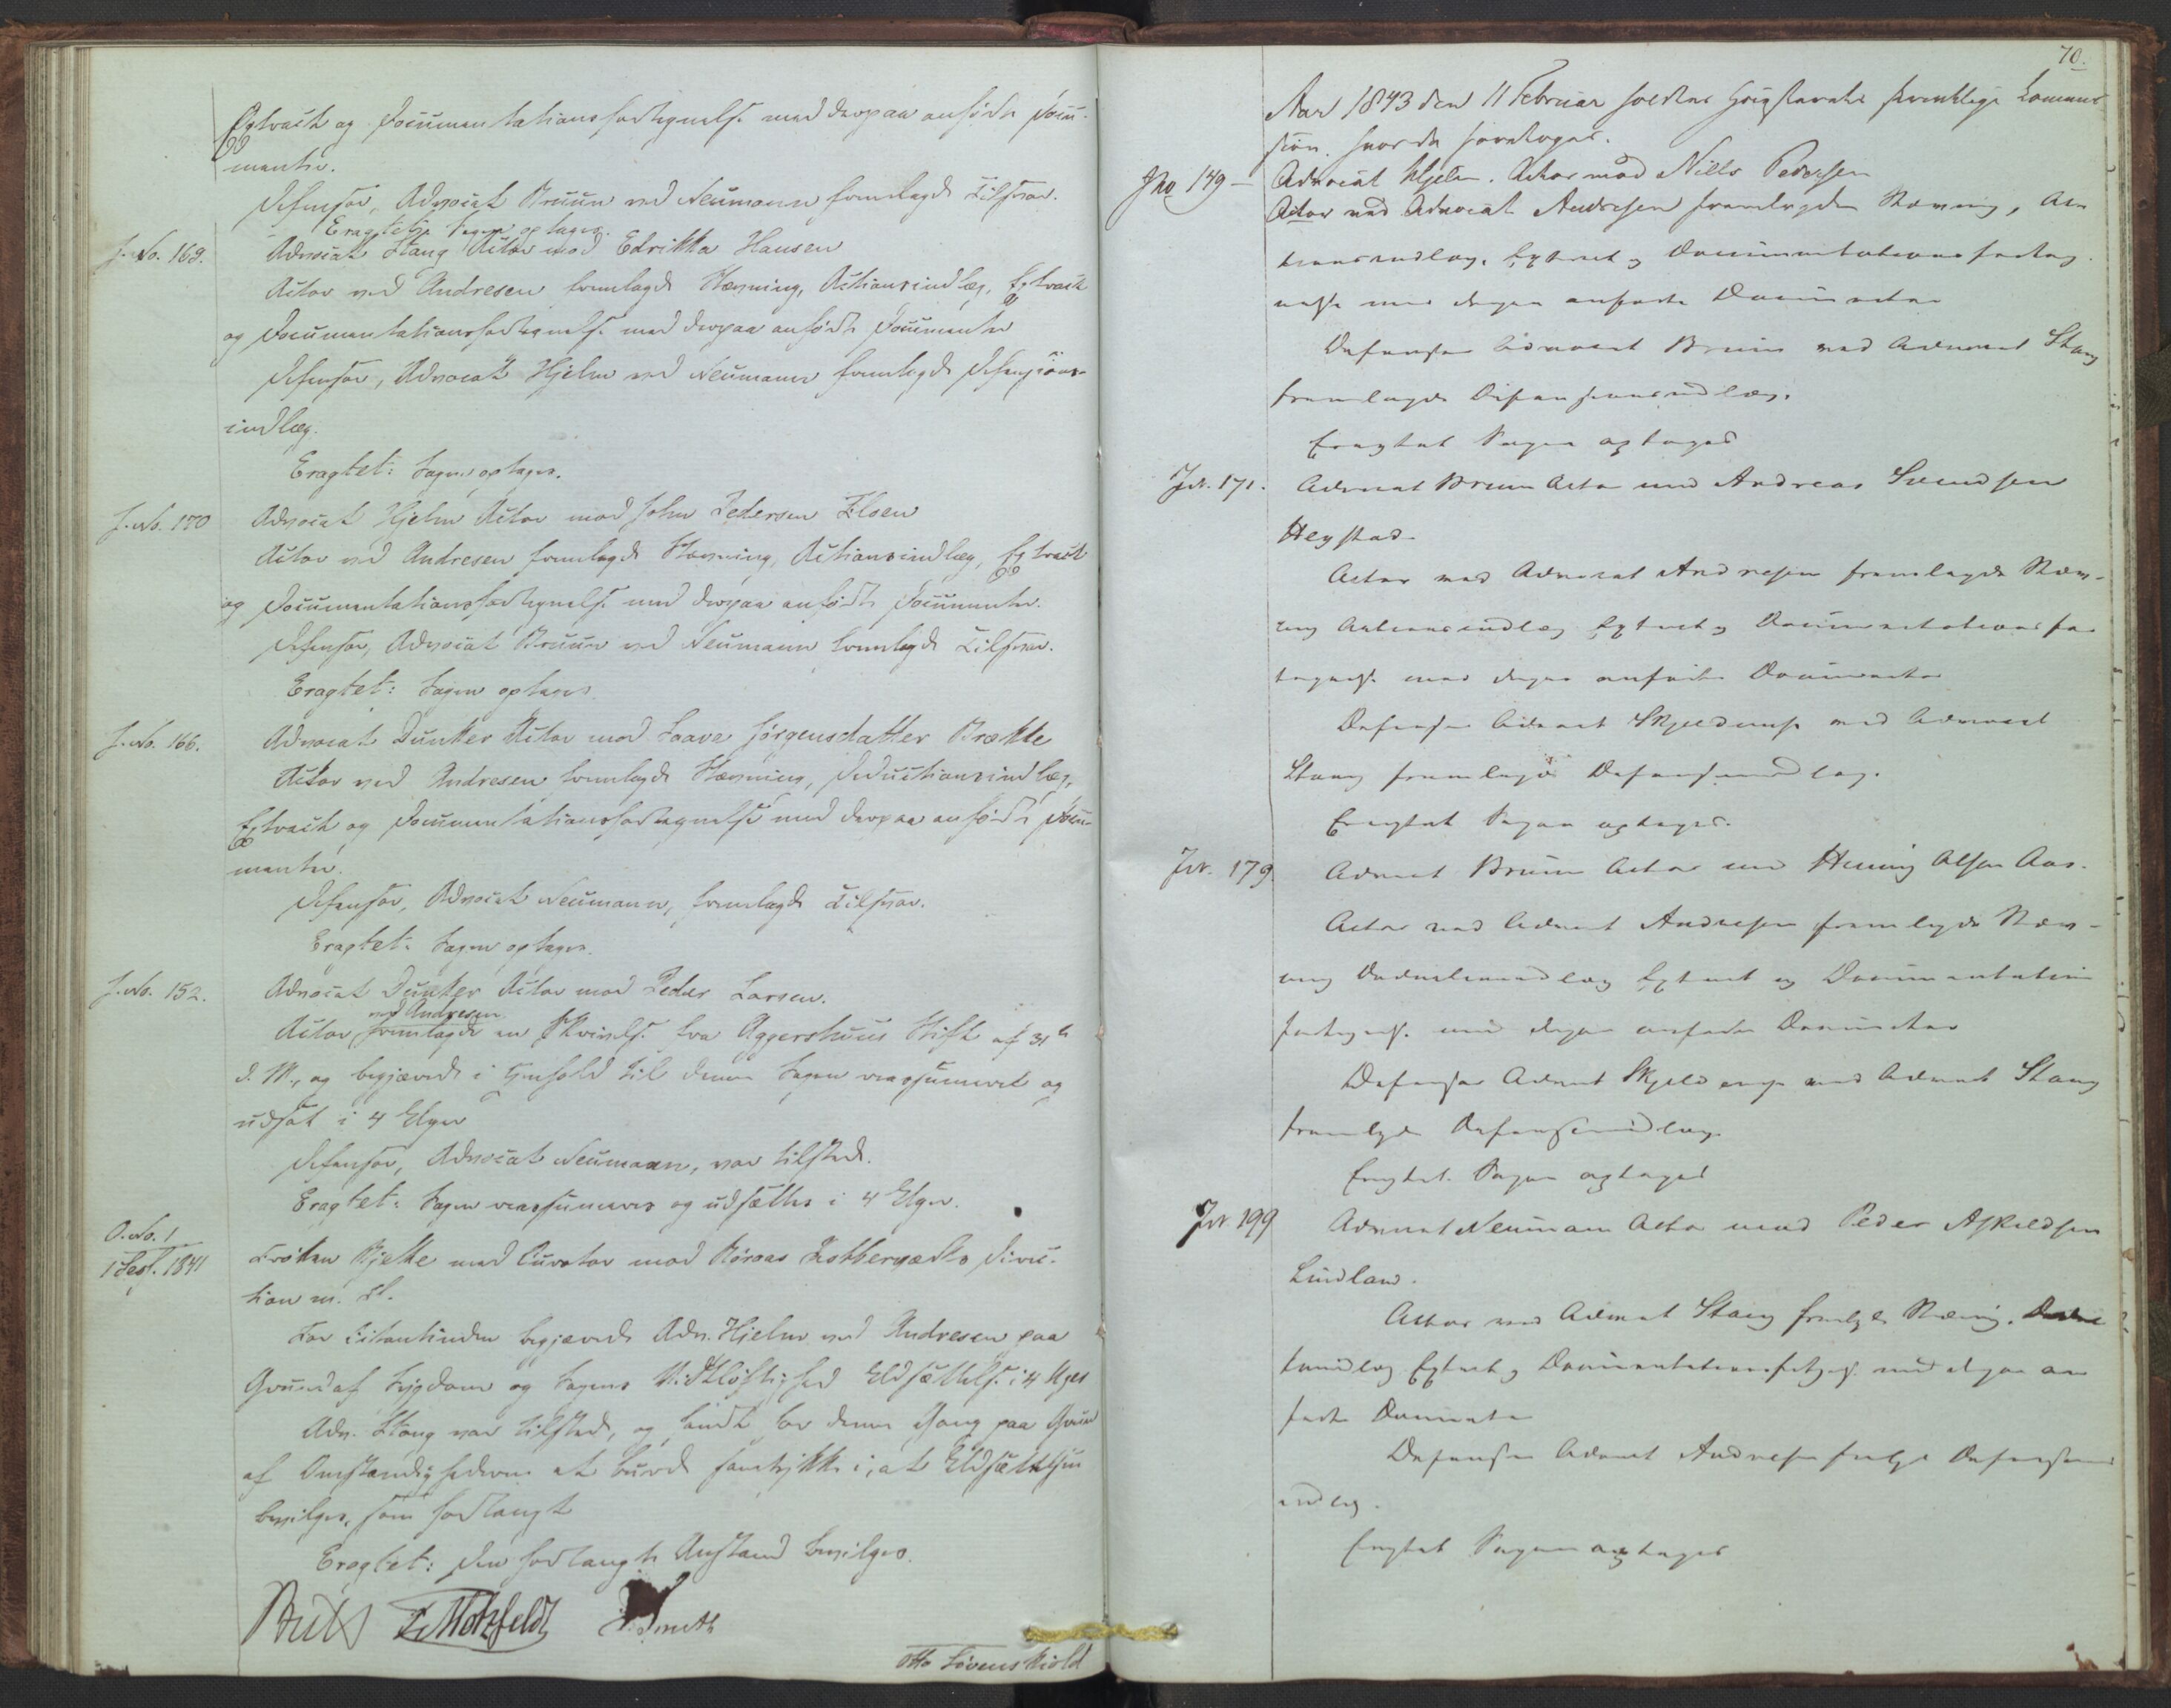 Extract og Documentationsfortegnelse med derpaa anførte Docu-
menter.
Defensor, Advocat Bruun ved Neumann fremlagde Tilsvar.
Eragtet: Sagen optages.
J. No. 169. Advocat Stang Actor mod Edrikka Hansen
Actor ved Andresen fremlagde Stævning, Actionsindlæg, Extract
og Documentationsfortegnelse med derpaa anførte Documenter
Defensor, Advocat Hjelm ved Neumann fremlagde Defensions-
indlæg.
Eragtet: Sagen optages.
J. No. 170 Advocat Hjelm Actor mod John Pedersen Elsen
Actor ved Andresen fremlagde Stævning, Actionsindlæg, Extract
og Documentationsfortegnelse med derpaa anførte Documenter.
Defensor, Advocat Bruun ved Neumann fremlagde Tilsvar.
Eragtet: Sagen optages.
J. No. 166. Advocat Dunker Actor mod Jørgensdatter Brække
Actor ved Andresen fremlagde Stævning, Deductionsindlæg,
Extract og Documentationsfortegnelse med derpaa anførte Docu-
menter.
Defensor, Advocat Neumann, fremlagde Tilsvar.
Eragtet: Sagen optages.
J. No. 152. Advocat Dunker Actor mod Peder Larsen.
ved Andresen
Actor fremlagde en Skrivelse fra Aggershuus Stift af 31te
d. M., og begjærede i Henhold til denne Sagen reassumeret og
udsat i 4 Uger
Defensor, Advocat Neumann, var tilstede.
Eragtet: Sagen reassumeres og udsættes i 4 Uger.
O. No. 1
1 Sept. 1841 Frøken Bjelke med Curator mod Røraas Kobberværks Direc-
tion m. Fl.
For Citantinden begjærede Adv. Hjelm ved Andresen paa
Grund af Sygdom og Sagens Vidtløftighed Udsættelse i 4 Uger
Adv. Stang var tilstede, og fandt for denne Gang paa Grund
af Omstændighederne at burde samtykke i, at Udsættelsen
bevilges, som forlangt
Eragtet: Den forlangte Anstand bevilges.
Motzfeldt Smith
Otto Løvenskiold
70.
Aar 1843 den 11 Februar holdtes Høiesterets skriftlige Commis-
sion. hvorda foretoges.
J No 149 – Advocat Hjelm. Actor mod Niels Pedersen
Actor ved Advocat Andresen fremlagde Stævning, Ac-
tionsindlæg, Extract og Documentationsforteg-
nelse med derpaa anførte Documenter
Defensor Advocat Bruun ved Advocat Stang
fremlagde Defensionsindlæg.
Eragtet Sagen optages
J N. 171. Advocat Bruun Actor mod Andreas Svendsen
Heystad.
Actor ved Advocat Andresen fremlagde Stæv-
ning Actionsindlæg Extract og Documentationsfor-
tegnelse med derpaa anførte Documenter
Defensor Advocat Skjelderup ved Advocat
Stang fremlagde Defensionsindlæg.
Eragtet Sagen optages.
J N. 179. Advocat Bruun Actor mod Henning Olsen Aas.
Actor ved Advocat Andresen fremlagde Stæv-
ning Deductionsindlæg Extract og Documentations
fortegnelse med derpaa anførte Documenter
Defensor Advocat Skjelderup ved Advocat Stang
fremlagde Defensionsindlæg
Eragtet. Sagen optages
J N. 199 Advocat Neumann Actor mod Peder Askildsen
Lindland.
Actor ved Advocat Stang fremlagde Stævning, Deduc
tionsindlæg Extract og Documentationsfortegnelse med derpaa an
førte Documenter
Defensor Advocat Andresen fremlagde Defensions
indlæg.
Eragtet Sagen optages